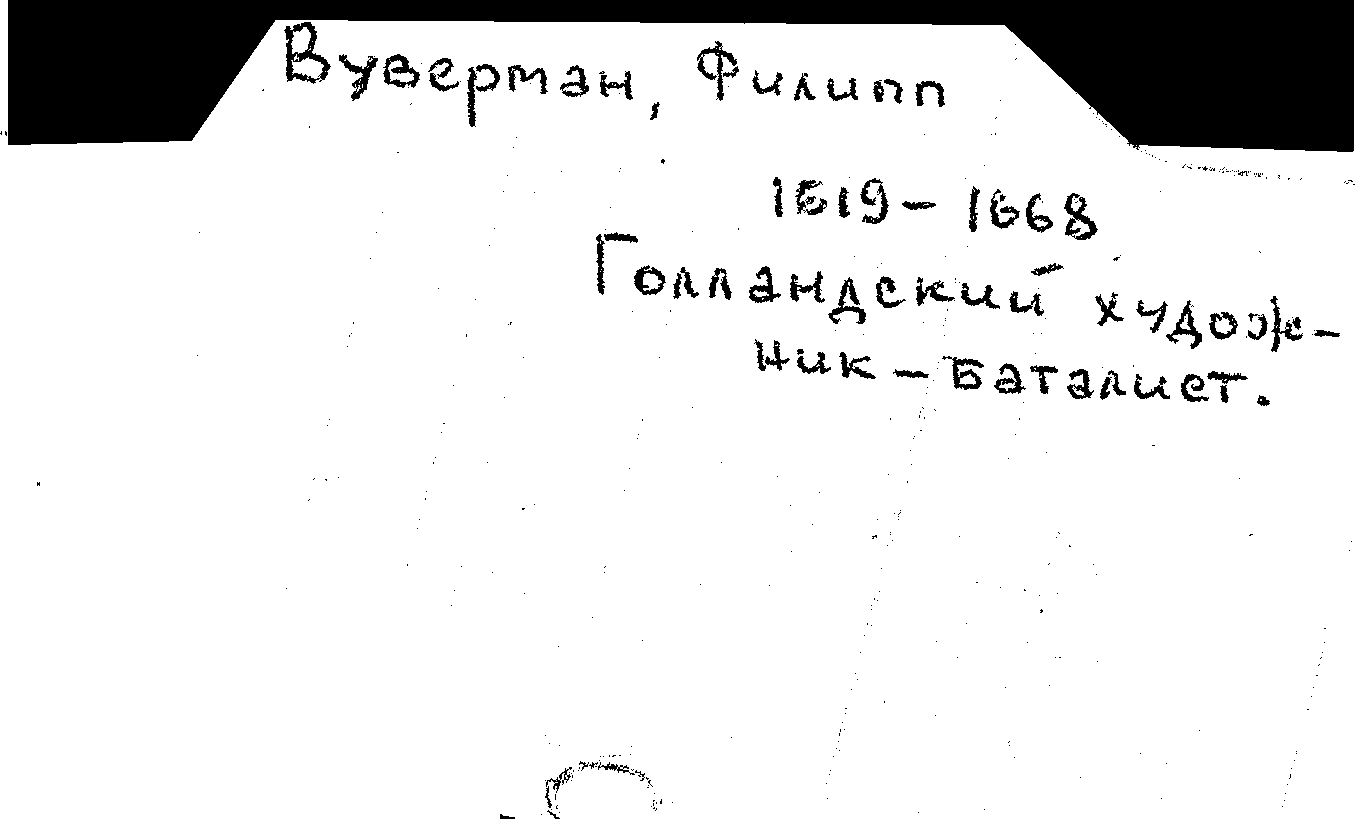 Вуверман, Филипп
1619-1668
Голландский худож-
ник-баталист.